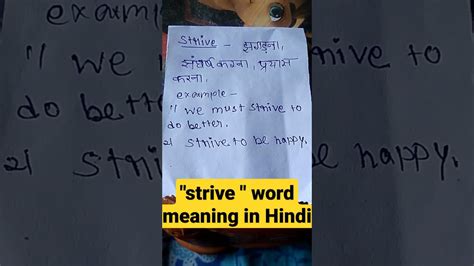 Strive - झगड़ना,
संघर्ष करना, प्रयास
करना,
example -
1/ we must strive to
do better.
2/ strive to be happy.
"strive " word
meaning in Hindi